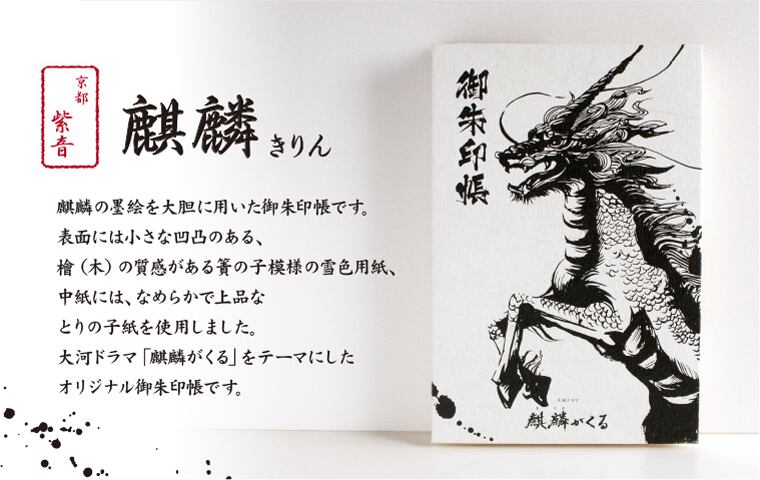 京都
紫音
麒麟 きりん
麒麟の墨絵を大胆に用いた御朱印帳です。
表面には小さな凹凸のある、
檜（木）の質感がある簀の子模様の雪色用紙、
中紙には、なめらかで上品な
とりの子紙を使用しました。
大河ドラマ「麒麟がくる」をテーマにした
オリジナル御朱印帳です。
御朱印帳
大河ドラマ
麒麟がくる